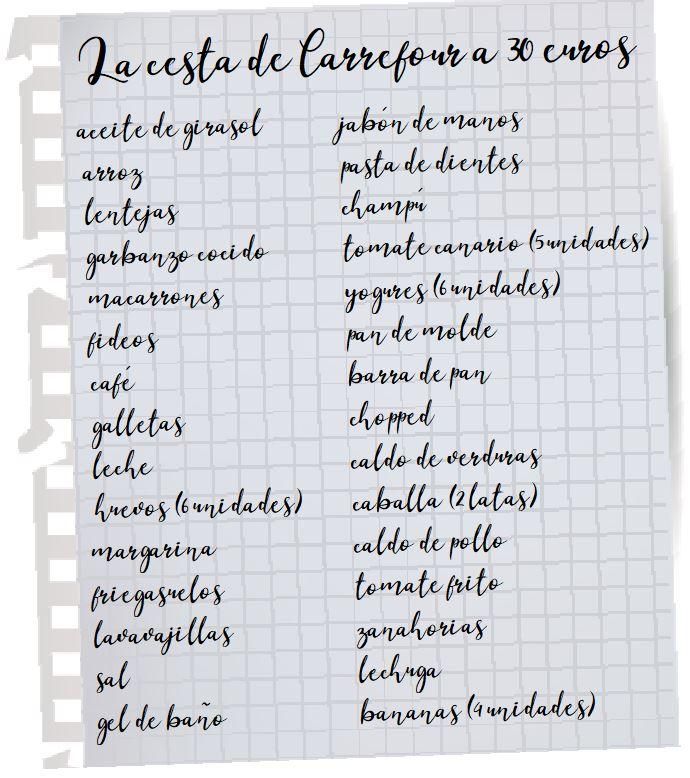 La cesta de Carrefour a 30 euros
aceite de girasol
arroz
lentejas
garbanzo cocido
macarrones
fideos
café
galletas
leche
huevos (6 unidades)
margarina
friegasuelos
lavavajillas
sal
gel de baño
jabón de manos
pasta de dientes
champú
tomate canario (5 unidades)
yogures (6 unidades)
pan de molde
barra de pan
chopped
caldo de verduras
caballa (2 latas)
caldo de pollo
tomate frito
zanahorias
lechuga
bananas (4 unidades)